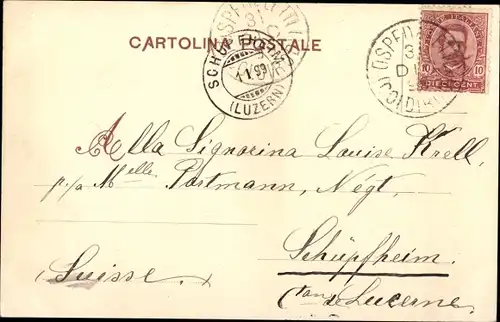 CARTOLINA POSTALE
OSPEDALETTI
31
DIC
(COLDIRODI)
10 10
DIECI CENT
SCHÜPFHEIM
1.I.99
(LUZERN)
Alla Signorina Louise Krell,
p/a Melle Portmann, Négt,
Schüpfheim.
(Suisse.)
Cton de Lucerne.